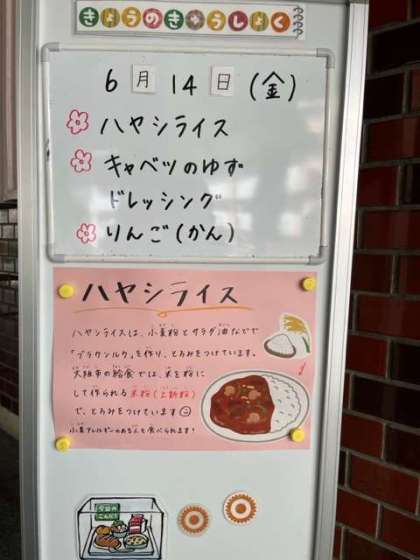 きょうのきゅうしょく
6月14日(金)
ハヤシライス
キャベツのゆず
ドレッシング
りんご(かん)
ハヤシライス
ハヤシライスは、小麦粉とサラダ油などで
「ブラウンルウ」を作り、とろみをつけています。
大阪市の給食では、米を粉に
して作られる米粉(上新粉)
で、とろみをつけています
小麦アレルギーのお友だちも食べられます!